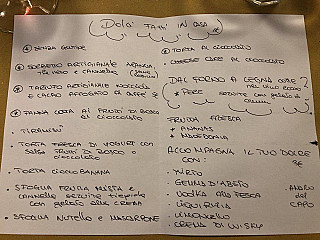 Dolci Fatti in casa
* SENZA GLUTINE
* SORBETTO ARTIGIANALE ARANCIA,
THE NERO E CANNELLA
* TARTUFO ARTIGIANALE NOCCIOLA
E CACAO AFFOGATO AL CAFFE'
* PANNA COTTA AI FRUTTI DI BOSCO
AL CIOCCOLATO
• TIRAMISU
• TORTA FRESCA DI YOGURT CON
SALSA FRUTTI DI BOSCO O
CIOCCOLATO
• TORTA CIOCCOBANANA
• SFOGLIA FRUTTA MISTA E
CANNELLA SERVITE TIEPIDE
CON GELATO ALLA CREMA
• SFOGLIA NUTELLA E MASCARPONE
* TORTA AL CIOCCOLATO
CUORE AL CIOCCOLATO
DAL FORNO A LEGNA
NEL VINO ROSSO
* PERE
SERVITE CON GELATO DI
CREMA
FRUTTA FRESCA
* ANANAS
* MACEDONIA
ACCOMPAGNA IL TUO DOLCE
CON: 3€
• MIRTO
• GEMMA D'ABETO
• VODKA ALLA PESCA
• LIQUIRIZIA
• LIMONCELLO
• CREMA DI WISKY
AMARO
DEL
CAPO